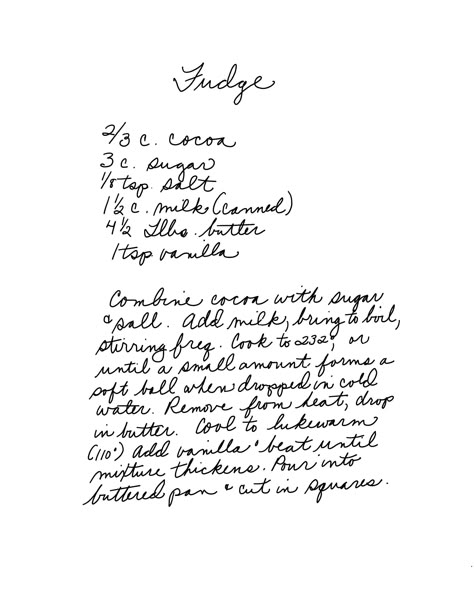 Fudge
2/3 c. cocoa
3 c. sugar
1/8 tsp. salt
1 1/2 c. milk (canned)
4 1/2 Tlbs. butter
1 tsp vanilla
Combine cocoa with sugar
& salt. Add milk, bring to boil,
stirring freq. Cook to 232°, or
until a small amount forms a
soft ball when dropped in cold
water. Remove from heat, drop
in butter. Cool to lukewarm
(110°) Add vanilla & beat until
mixture thickens. Pour into
buttered pan & cut in squares.